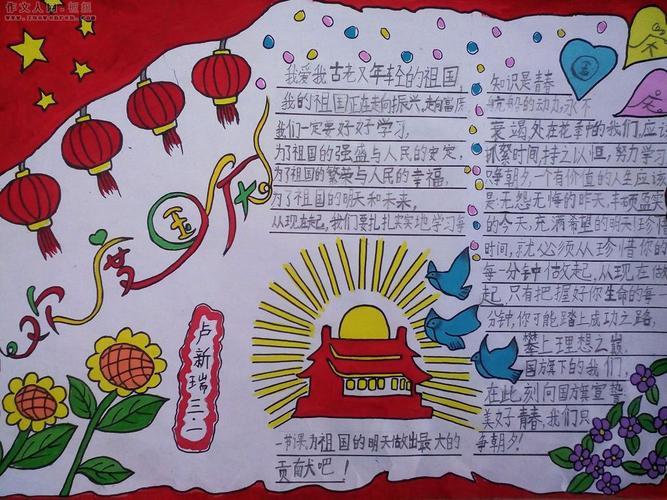 作文人网·恒组
www.zuowenren.com
欢度国庆
卢新瑞三.
我爱我古老又年轻的祖国,
我的祖国正在走向振兴,走向富庶
我们一定要好好学习,
为了祖国的强盛与人民的安定,
为了祖国的繁荣与人民的幸福,
为了祖国的明天和未来,
从现在起,我们要扎扎实实地学习每
一节课,为祖国的明天做出最大的
贡献吧!
知识是青春
航船的动力,永不
衰竭,处在花季的我们,应
抓紧时间,持之以恒,努力学习
争朝夕,一个有价值的人生应该
是无怨无悔的昨天,丰硕盈实
的今天,充满希望的明天!珍惜
时间,就必须从珍惜你的
每一分钟做起,从现在做
起,只有把握好你生命的每一
分钟,你可能踏上成功之路,
攀上理想之巅.
国旗下的我们,
在此刻向国旗宣誓
美好青春,我们只
争朝夕!